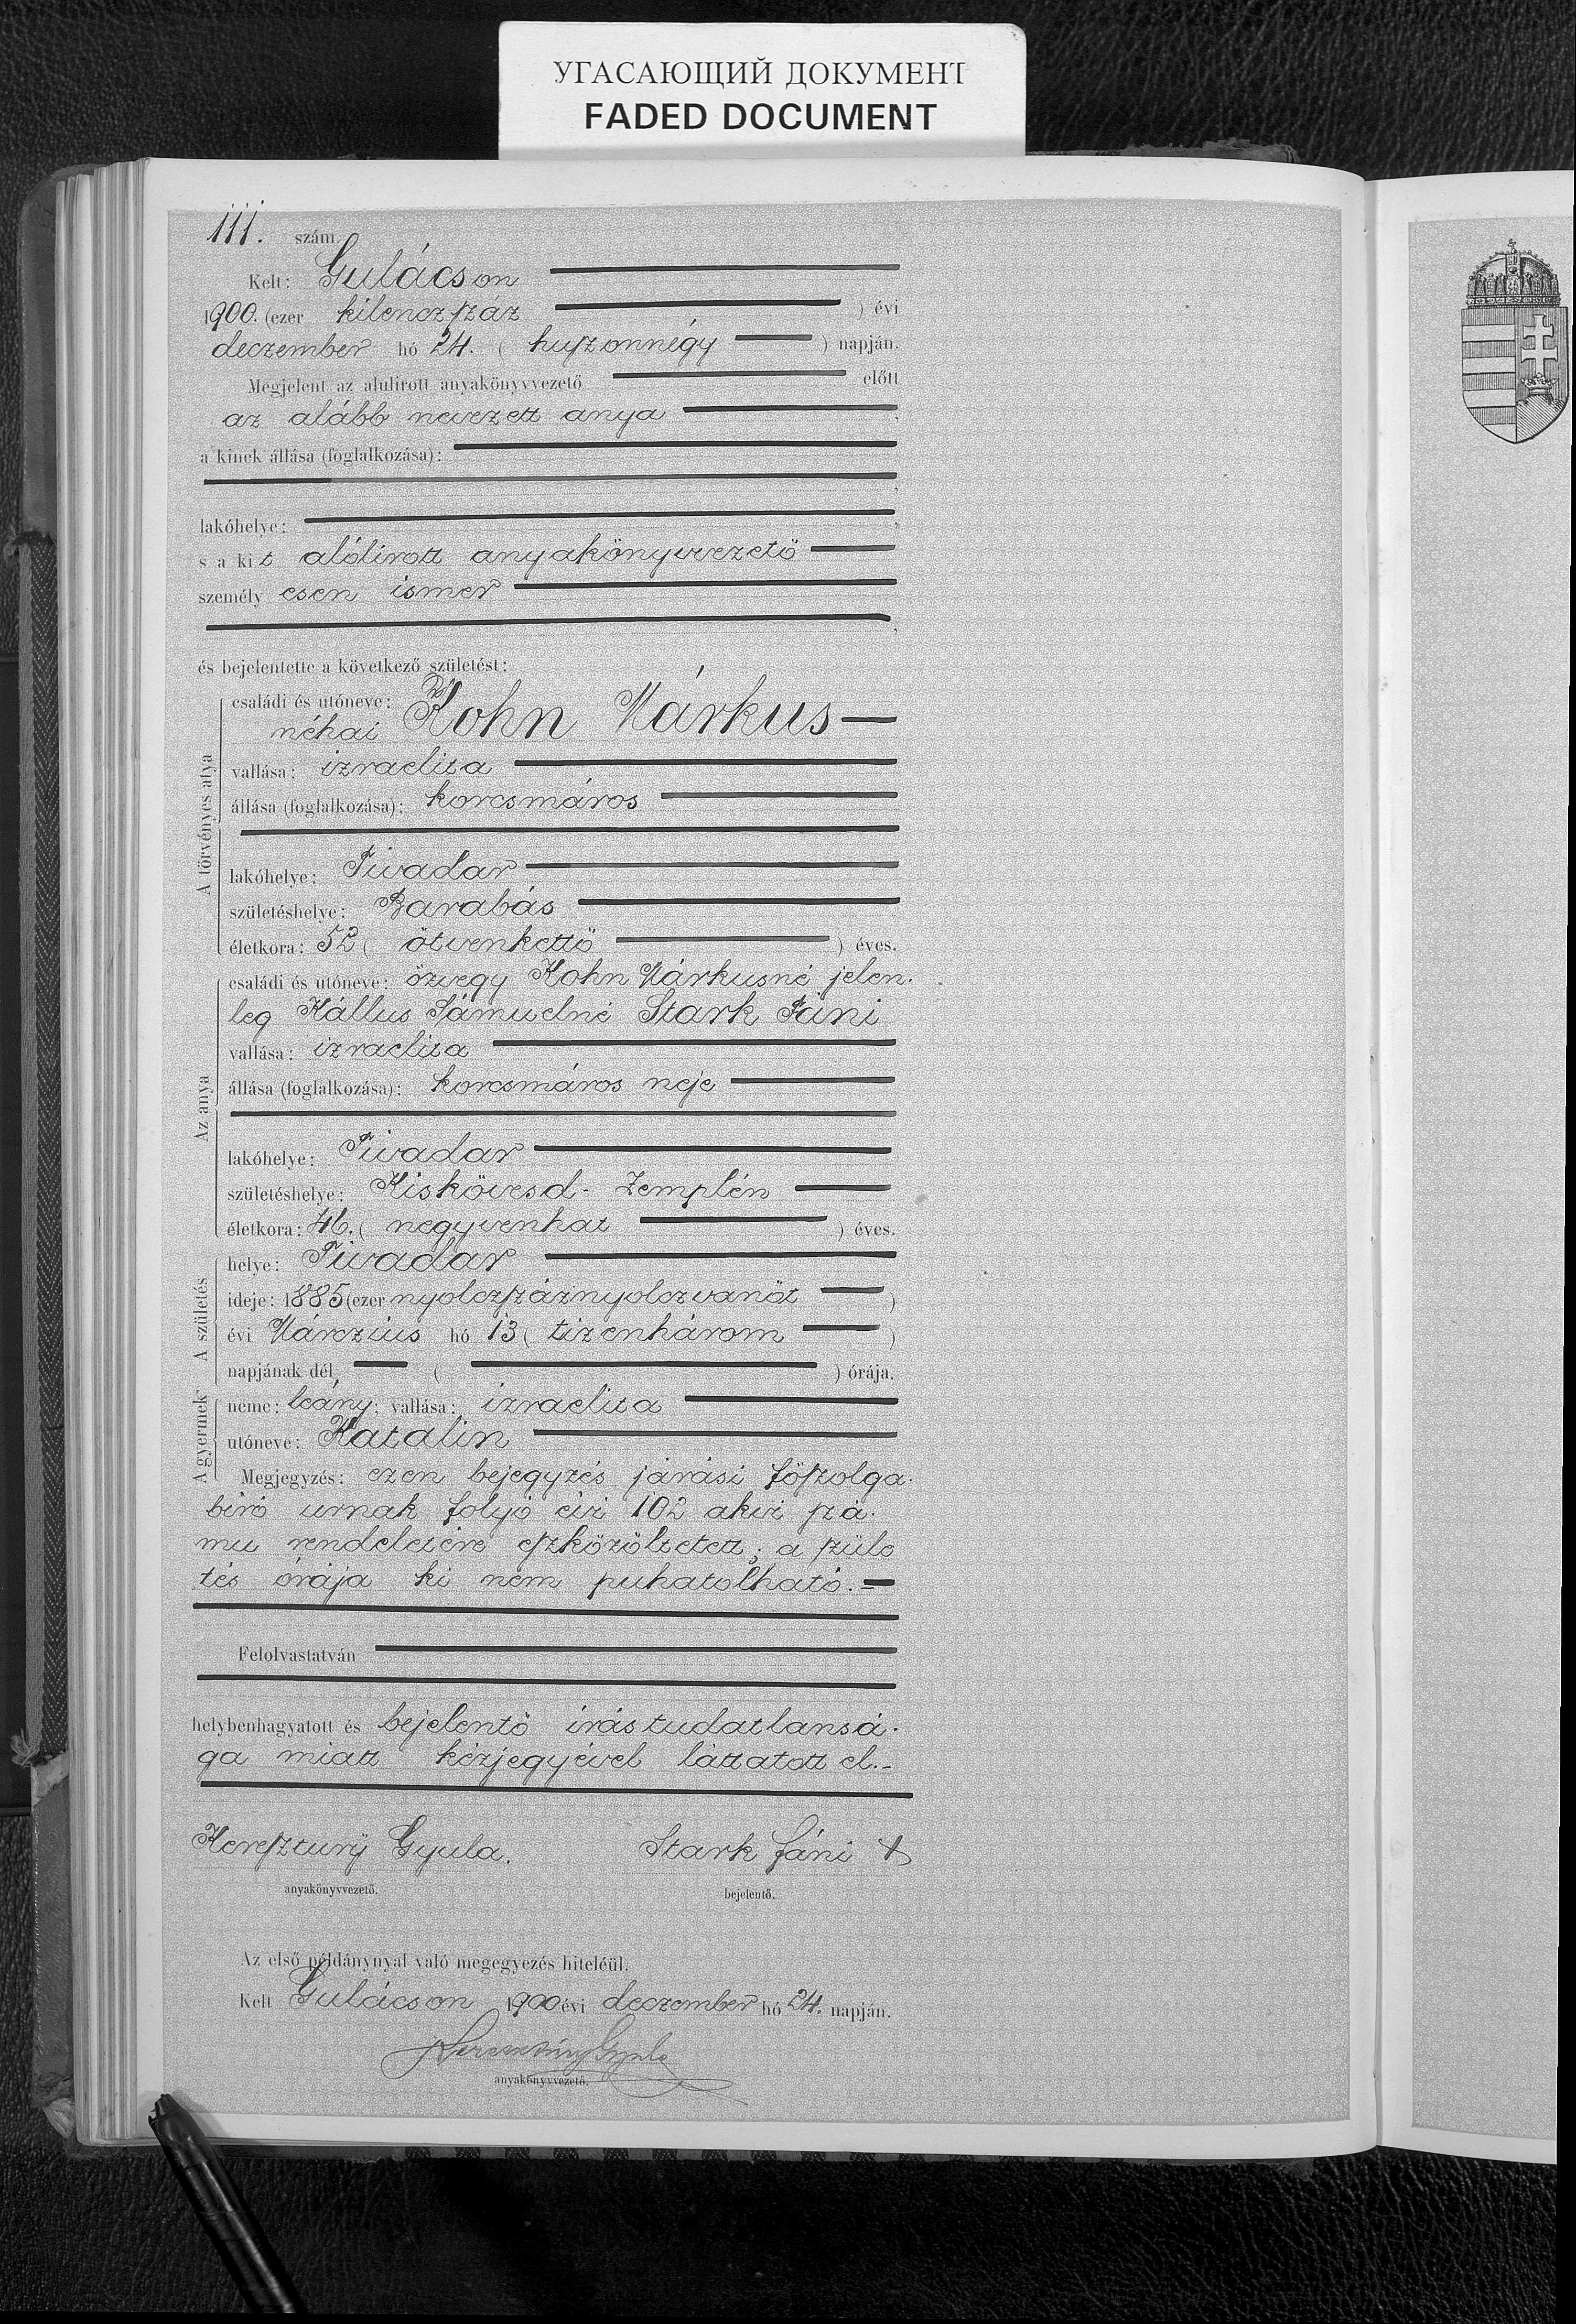 УГАСАЮЩИЙ ДОКУМЕНТ
FADED DOCUMENT
111. szám.
Kelt: Gulácson
1900. (ezer kilenczszáz ) évi
deczember hó 24. ( huszonnégy ) napján.
Megjelent az alulirott anyakönyvvezető előtt
az alább nevezett anya,
a kinek állása (foglalkozása):
lakóhelye:
s a kit alólirott anyakönyvvezető
személyesen ismer
és bejelentette a következő születést:
A törvényes atya
családi és utóneve:
néhai Kohn Márkus
vallása: izraelita
állása (foglalkozása): korcsmáros
lakóhelye: Tivadar
születéshelye: Barabás
életkora: 52 ( ötvenkettő ) éves.
Az anya
családi és utóneve: özvegy Kohn Márkusné jelen-
leg Kállus Sámuelné Stark Fáni
vallása: izraelita
állása (foglalkozása): korcsmáros neje
lakóhelye: Tivadar
születéshelye: Kiskövesd - Zemplén
életkora: 46. ( negyvenhat ) éves.
A születés
helye: Tivadar
ideje: 1885 (ezer nyolczszáznyolczvanöt )
évi Márczius hó 13 ( tizenhárom )
napjának dél ( ) órája.
A gyermek
neme: leány; vallása: izraelita
utóneve: Katalin
Megjegyzés: ezen bejegyzés járási főszolga-
biró urnak folyó évi 102 akvi szá-
mu rendeletére eszközöltetett; a szüle
tés órája ki nem puhatolható. -
Felolvastatván
helybenhagyatott és bejelentő irástudatlansá-
ga miatt kézjegyével láttatott el.-
Kereszturÿ Gyula. Stark Fáni +
anyakönyvvezető. bejelentő.
Az első példánynyal való megegyezés hiteléül.
Kelt Gulácson 1900 évi deczember hó 24. napján.
Kereszturÿ Gyula
anyakönyvvezető.